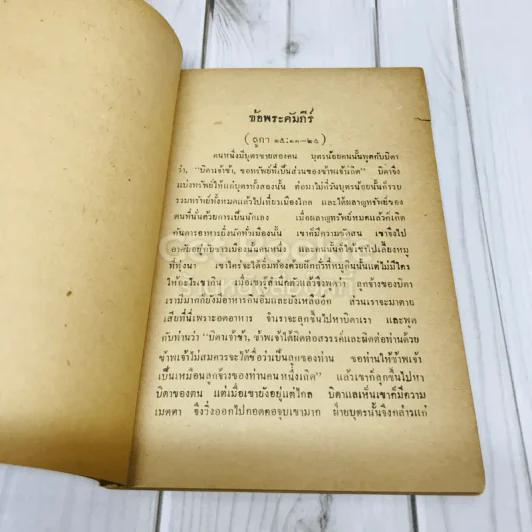 ข้อพระคัมภีร์
(ลูกา ๑๕:๑๑-๒๔)
คนหนึ่งมีบุตรชายสองคน บุตรน้อยคนนั้นพูดกับบิดา
ว่า, "บิดาเจ้าข้า, ขอทรัพย์ที่เป็นส่วนของข้าพเจ้าเถิด" บิดาจึง
แบ่งทรัพย์ให้แก่บุตรทั้งสองนั้น ต่อมาไม่กี่วันบุตรน้อยนั้นก็รวบ
รวมทรัพย์ทั้งหมดแล้วไปเที่ยวเมืองไกล และได้ผลาญทรัพย์ของ
ตนที่นั่นด้วยการเป็นนักเลง เมื่อผลาญทรัพย์หมดแล้วก็เกิด
กันดารอาหารยิ่งนักทั่วเมืองนั้น เขาก็มีความขัดสน เขาจึงไป
อาศัยอยู่กับชาวเมืองนั้นคนหนึ่ง และคนนั้นก็ใช้เขาไปเลี้ยงหมู
ที่ทุ่งนา เขาใคร่จะได้อิ่มท้องด้วยฝักถั่วที่หมูกินนั้นแต่ไม่มีใคร
ให้อะไรเขากิน เมื่อเขารู้สำนึกตัวแล้วจึงพูดว่า ลูกจ้างของบิดา
เรามีมากก็ยังมีอาหารกินอิ่มและยังเหลืออีก ส่วนเราจะมาตาย
เสียที่นี่เพราะอดอาหาร จำเราจะลุกขึ้นไปหาบิดาเรา และพูด
กับท่านว่า "บิดาเจ้าข้า, ข้าพเจ้าได้ผิดต่อสวรรค์และผิดต่อท่านด้วย
ข้าพเจ้าไม่สมควรจะได้ชื่อว่าเป็นลูกของท่าน ขอท่านให้ข้าพเจ้า
เป็นเหมือนลูกจ้างของท่านคนหนึ่งเถิด" แล้วเขาก็ลุกขึ้นไปหา
บิดาของตน แต่เมื่อเขายังอยู่แต่ไกล บิดาแลเห็นเขาก็มีความ
เมตตา จึงวิ่งออกไปกอดคอจุบเขามาก ฝ่ายบุตรนั้นจึงกล่าวแก่